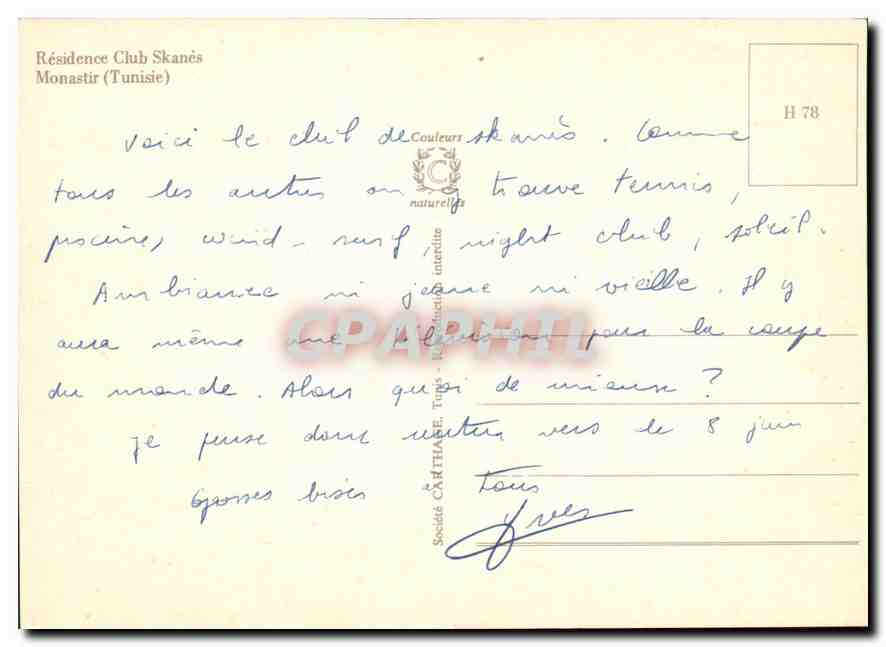 Résidence Club Skanès
Monastir (Tunisie)
H 78
Couleurs
C
naturelles
Société CARTHAGE. Tunis - Reproduction interdite
Voici le club de skanès. Comme
tous les autres on y trouve tennis,
piscine, wind-surf, night club, soleil.
Ambiance ni jeune ni vieille. Il y
aura même une télévision pour la coupe
du monde. Alors quoi de mieux ?
Je pense donc rentrer vers le 8 juin
Grosses bises à tous
Yves
CPAPHIL